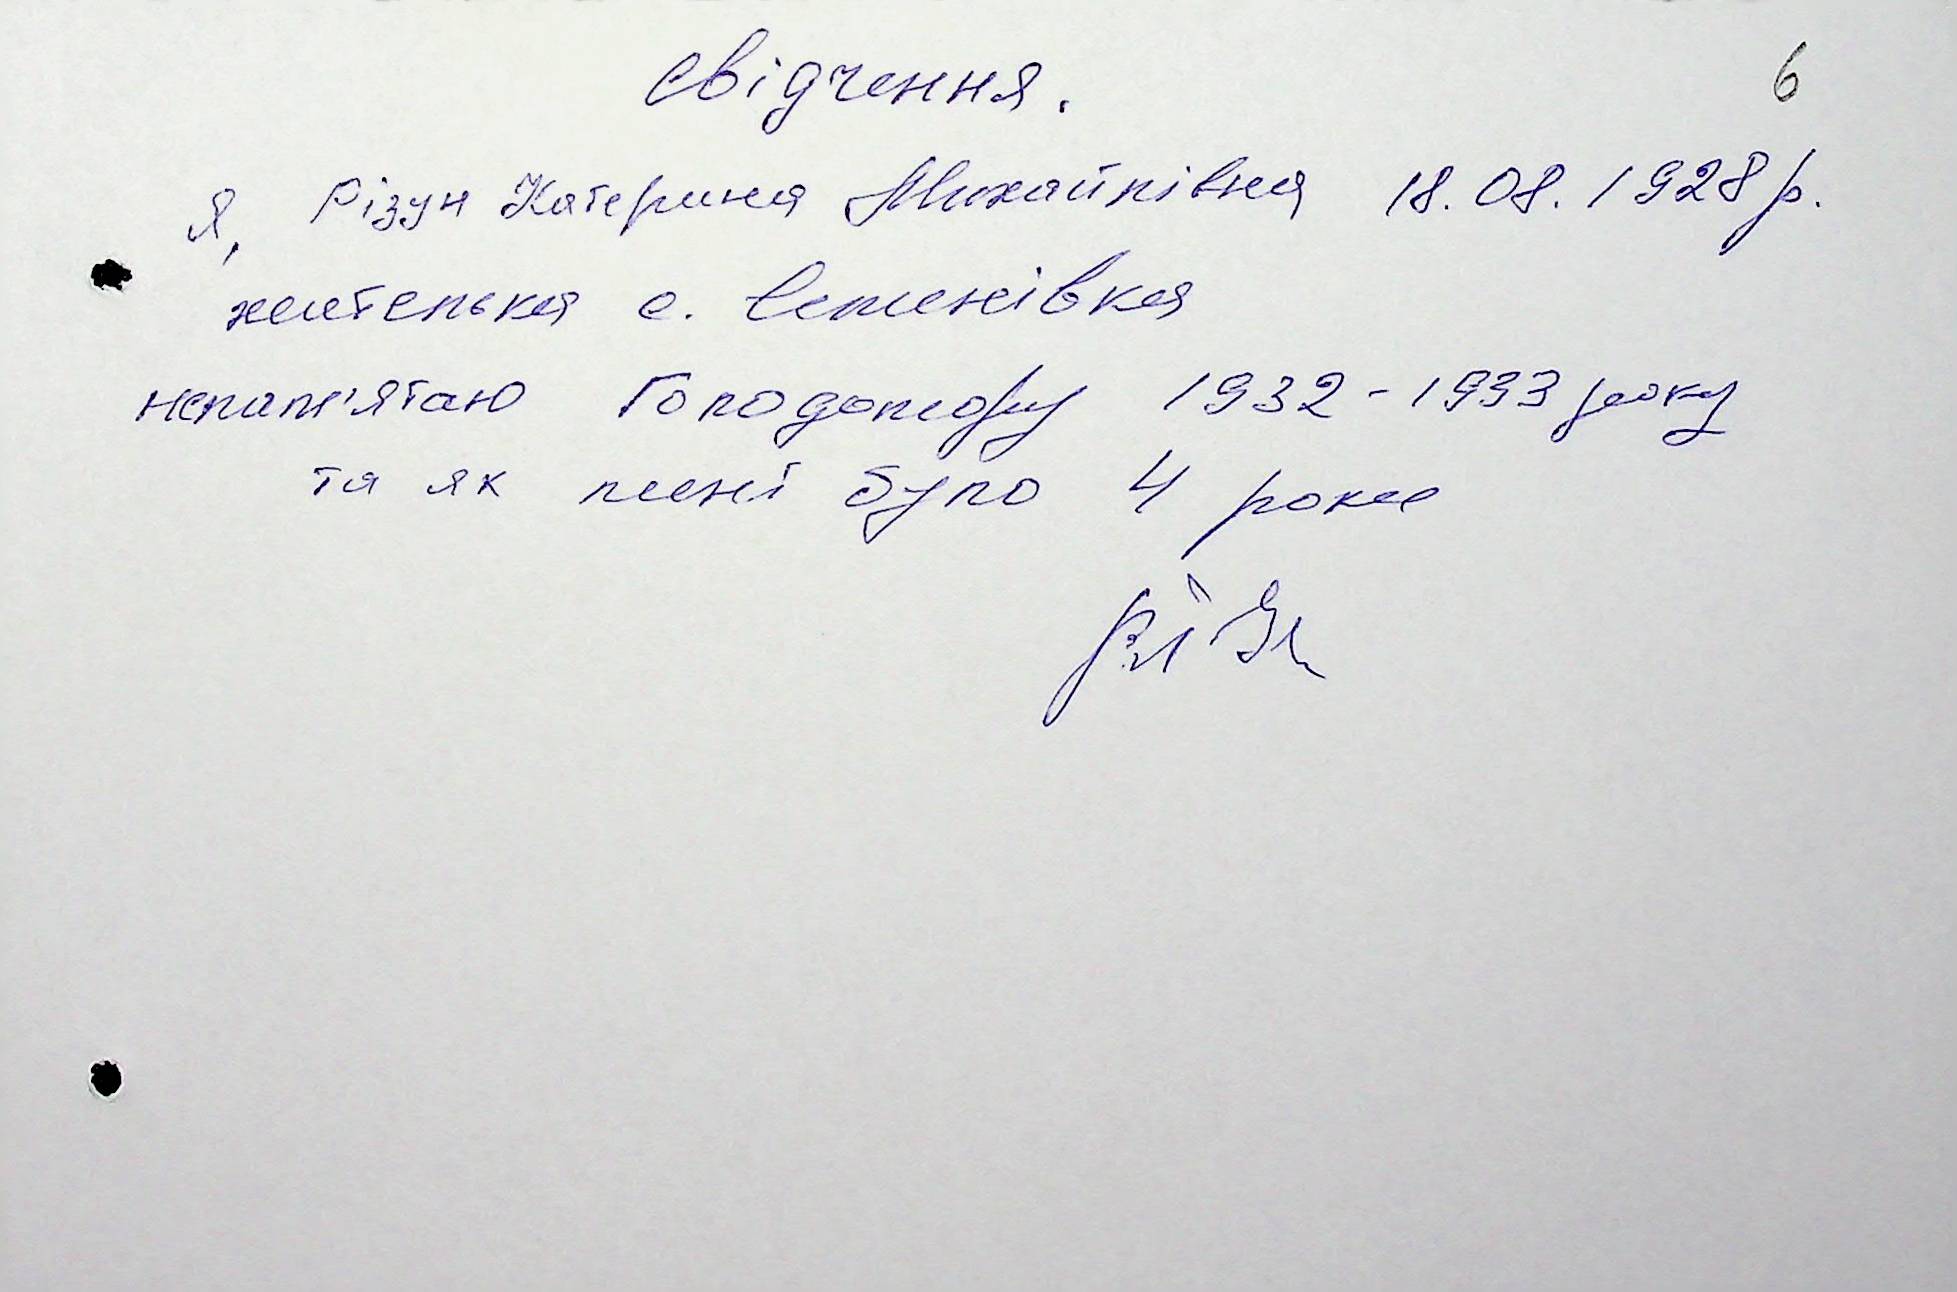 свідчення.
6
Я, Різун Катерина Михайлівна 18.08.1928р.
жителька с. Семенівка
непам'ятаю Голодомору 1932-1933 року
та як мені було 4 роки